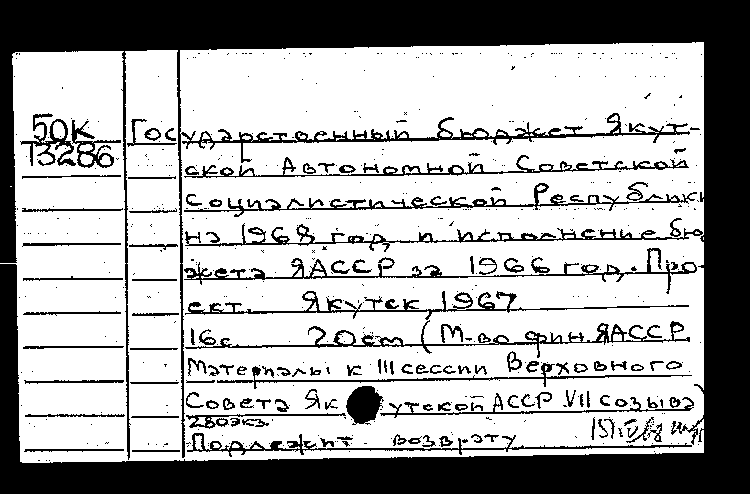 50К Государственный бюджет Якут-
13286 ской Автономной Советской
Социалистической Республики
на 1968 год и исполнение бю
жета ЯАССР за 1966 год. Про-
ект. Якутск, 1967
16с. 20см (М-во фин. ЯАССР.
Материалы к III сессии Верховного
Совета Як утской АССР VII созыва)
280экз.
Подлежит возврату